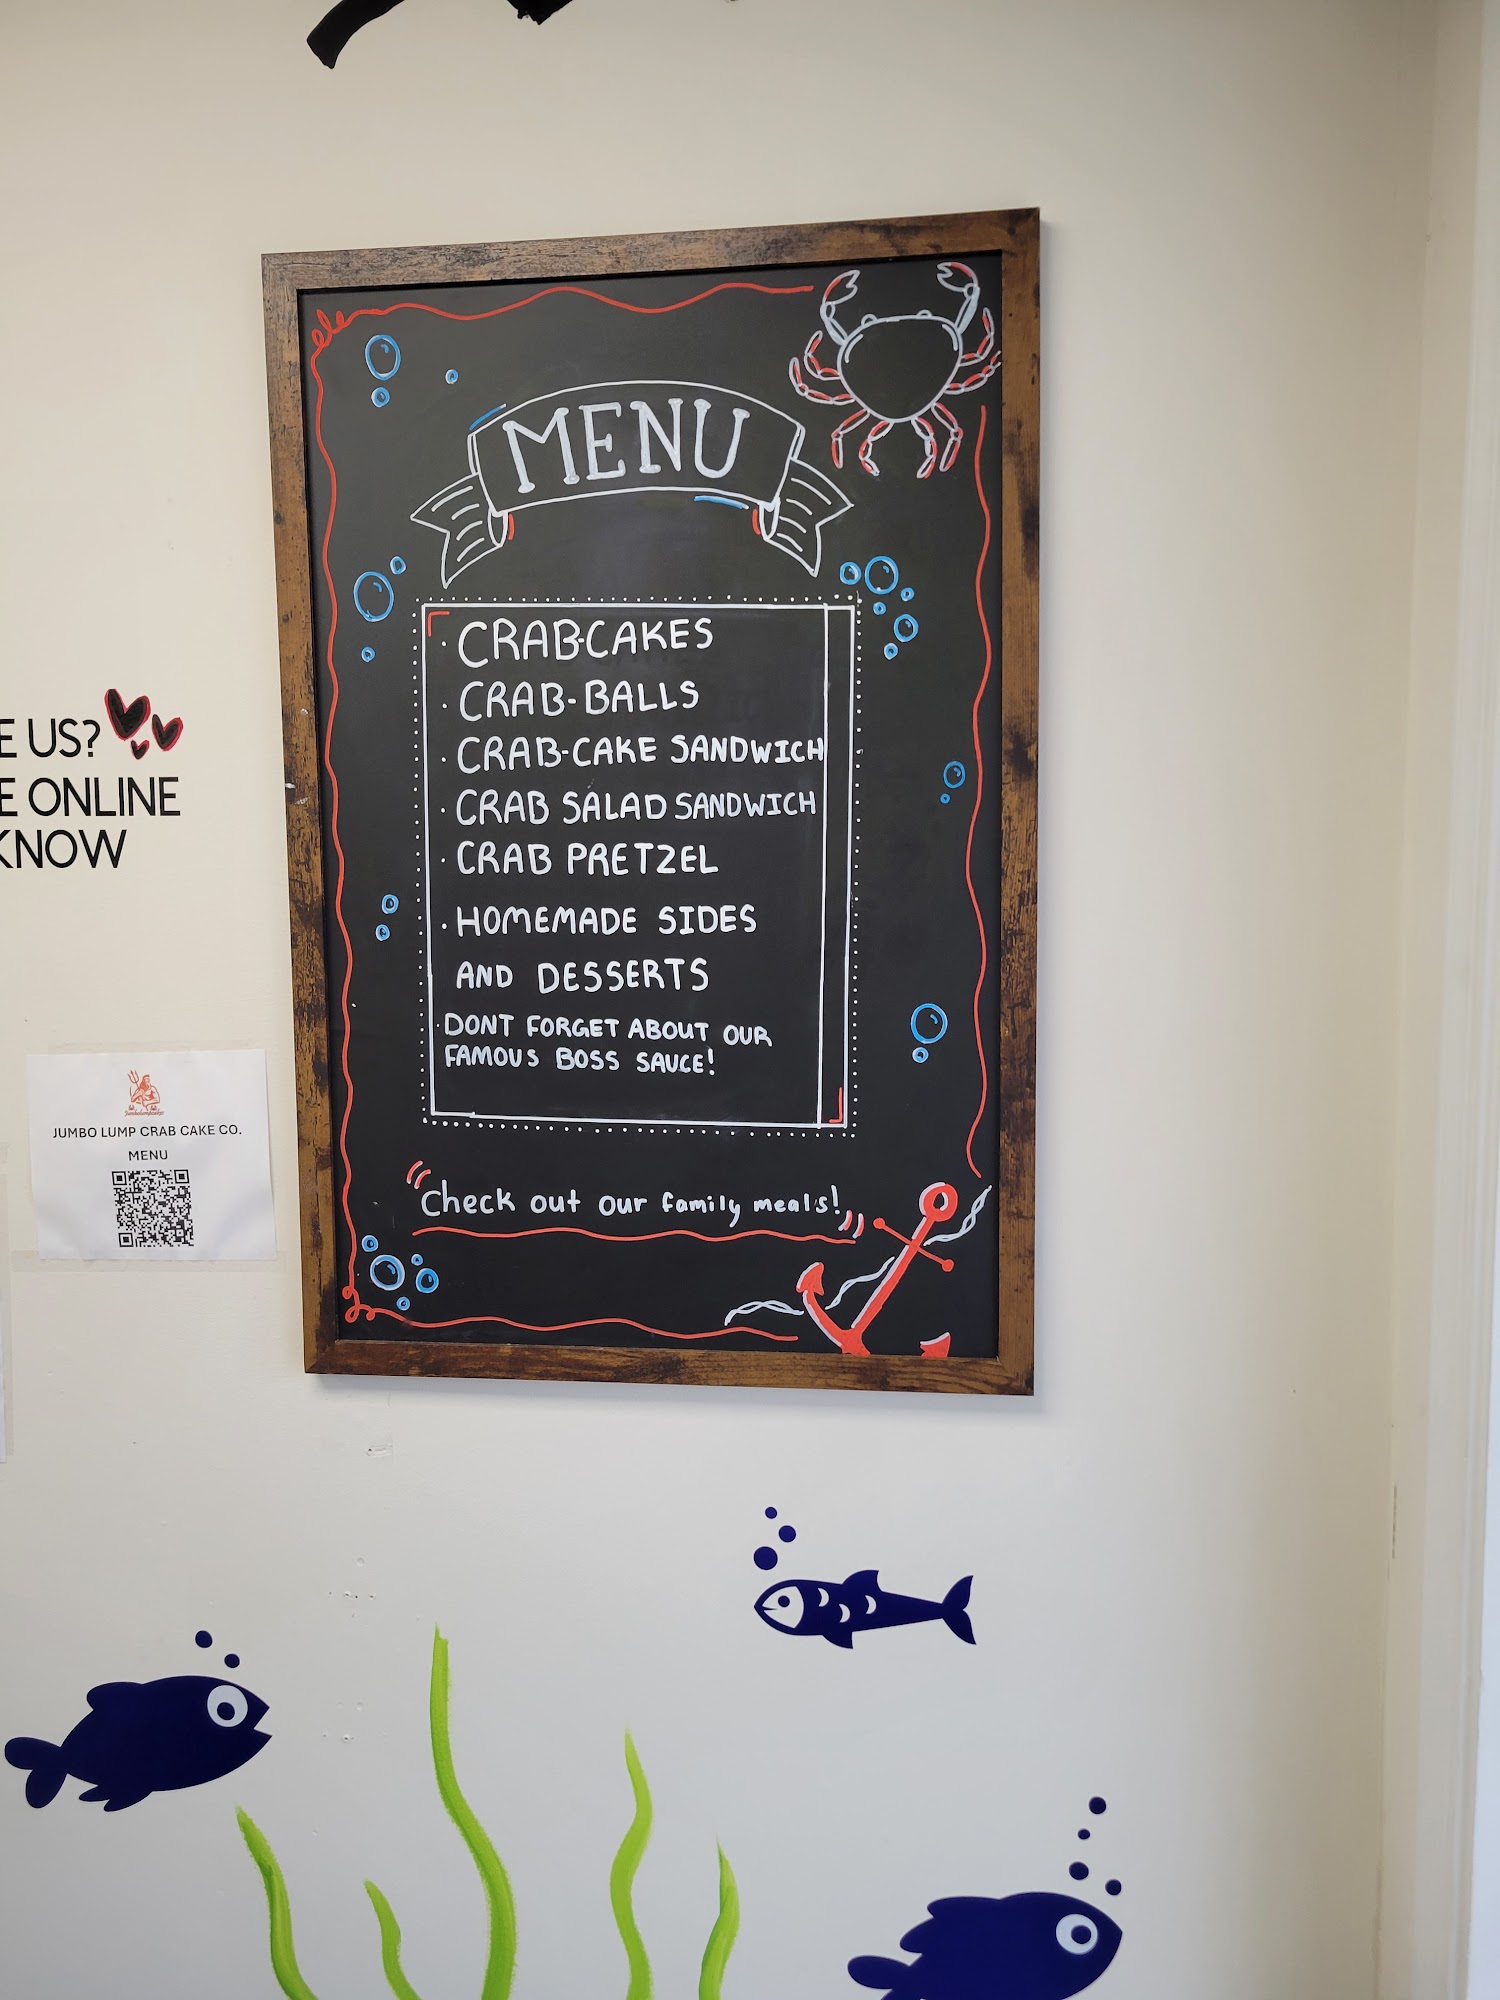 MENU
· CRAB-CAKES
· CRAB-BALLS
· CRAB-CAKE SANDWICH
· CRAB SALAD SANDWICH
· CRAB PRETZEL
· HOMEMADE SIDES
AND DESSERTS
· DONT FORGET ABOUT OUR
FAMOUS BOSS SAUCE!
"Check out our family meals!"
E US?
E ONLINE
KNOW
JUMBO LUMP CRAB CAKE CO.
MENU